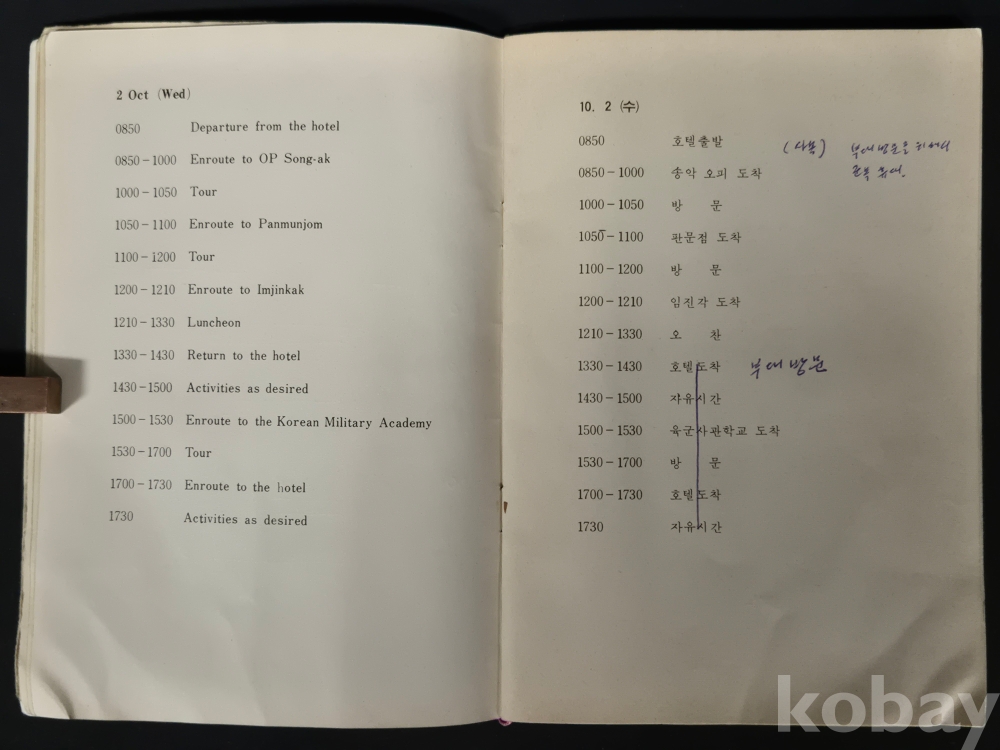 2 Oct (Wed)
0850 Departure from the hotel
0850-1000 Enroute to OP Song-ak
1000-1050 Tour
1050-1100 Enroute to Panmunjom
1100-1200 Tour
1200-1210 Enroute to Imjinkak
1210-1330 Luncheon
1330-1430 Return to the hotel
1430-1500 Activities as desired
1500-1530 Enroute to the Korean Military Academy
1530-1700 Tour
1700-1730 Enroute to the hotel
1730 Activities as desired
10. 2 (수)
0850 호텔출발
0850-1000 송악 오피 도착
부대방문을 위해서
1000-1050 방 문
1050-1100 판문점 도착
1100-1200 방 문
1200-1210 임진각 도착
1210-1330 오 찬
1330-1430 호텔도착 부대방문
1430-1500 자유시간
1500-1530 육군사관학교 도착
1530-1700 방 문
1700-1730 호텔도착
1730 자유시간
kobay